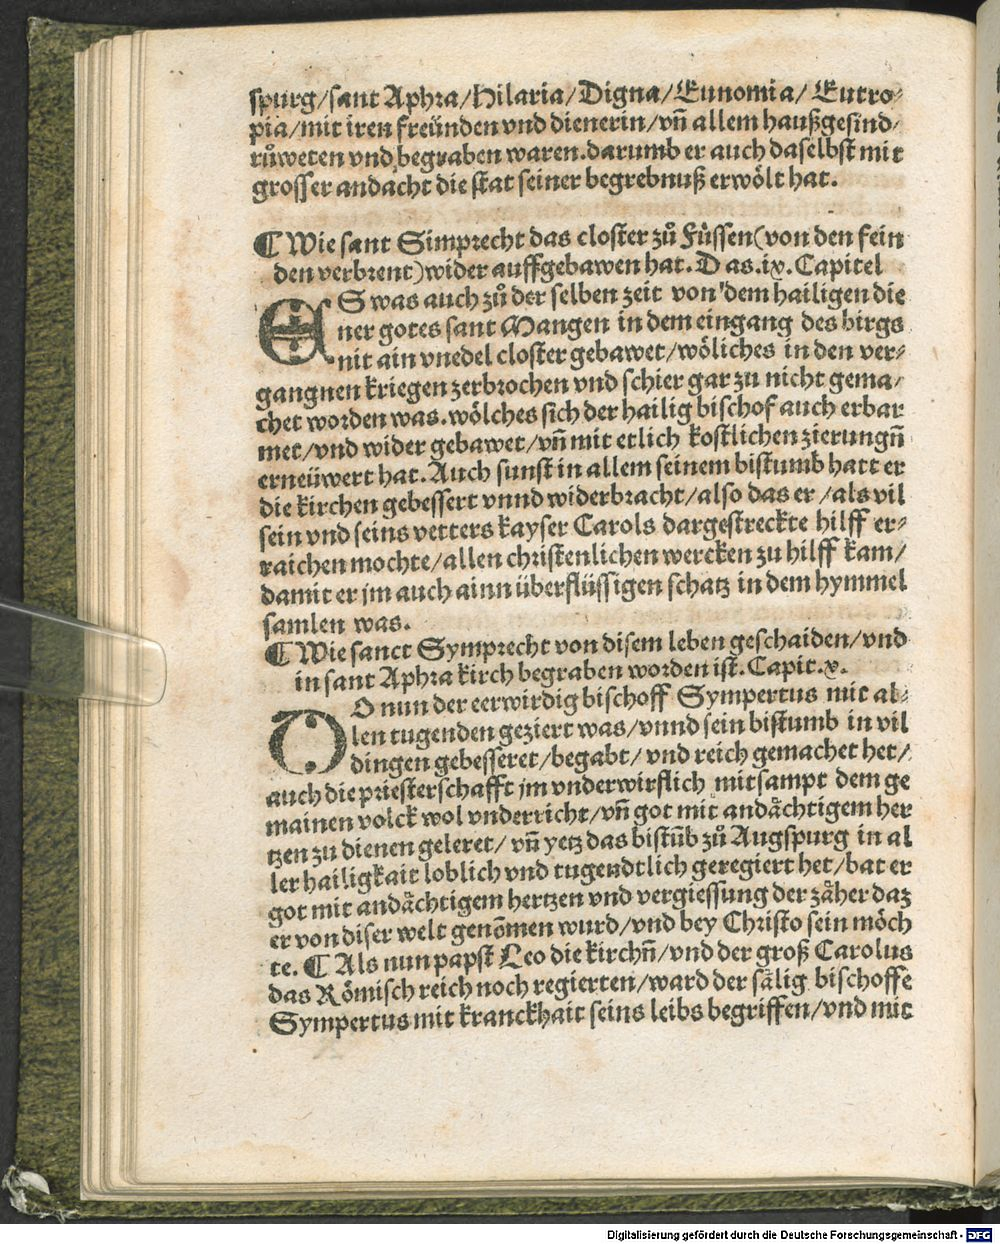 spurg/sant Aphra/Hilaria/Digna/Eunomia/ Eutro⸗
pia/mit iren freünden vnd dienerin/vñ allem haußgesind/
růweten vnd begraben waren.darumb er auch daselbst mit
grosser andacht die stat seiner begrebnuß erwölt hat.
¶ Wie sant Simprecht das closter zů Füssen(von den fein
den verbrent)wider auffgebawen hat. Das.ix.Capitel
ES was auch zů der selben zeit von dem hailigen die
ner gotes sant Mangen in dem eingang des birgs
nit ain vnedel closter gebawet/wöliches in den ver⸗
gangnen kriegen zerbrochen vnd schier gar zu nicht gema/
chet worden was.wölches sich der hailig bischof auch erbar
met/vnd wider gebawet/vñ mit etlich kostlichen zierungñ
erneüwert hat. Auch sunst in allem seinem bistumb hatt er
die kirchen gebessert vnnd widerbracht/also das er/als vil
sein vnd seins vetters kayser Carols dargestreckte hilff er⸗
raichen mochte/allen christenlichen wercken zu hilff kam/
damit er jm auch ainn überflüssigen schatz in dem hymmel
samlen was.
¶ Wie sanct Symprecht von disem leben geschaiden/vnd
in sant Aphra kirch begraben worden ist.Capit.x.
DO nun der eerwirdig bischoff Sympertus mit al⸗
len tugenden geziert was/vnnd sein bistumb in vil
dingen gebesseret/begabt/ vnd reich gemachet het/
auch die priesterschafft jm vnderwirflich mitsampt dem ge
mainen volck wol vnderricht/vñ got mit andächtigem her
tzen zu dienen geleret/ vñ yetz das bistūb zů Augspurg in al
ler hailigkait loblich vnd tugendtlich geregiert het/bat er
got mit andächtigem hertzen vnd vergiessung der zäher daz
er von diser welt genōmen wurd/vnd bey Christo sein möch
te. ¶ Als nun papst Leo die kirchñ/vnd der groß Carolus
das Römisch reich noch regierten/ward der sälig bischoffe
Sympertus mit kranckhait seins leibs begriffen/vnd mit
Digitalisierung gefördert durch die Deutsche Forschungsgemeinschaft - DFG